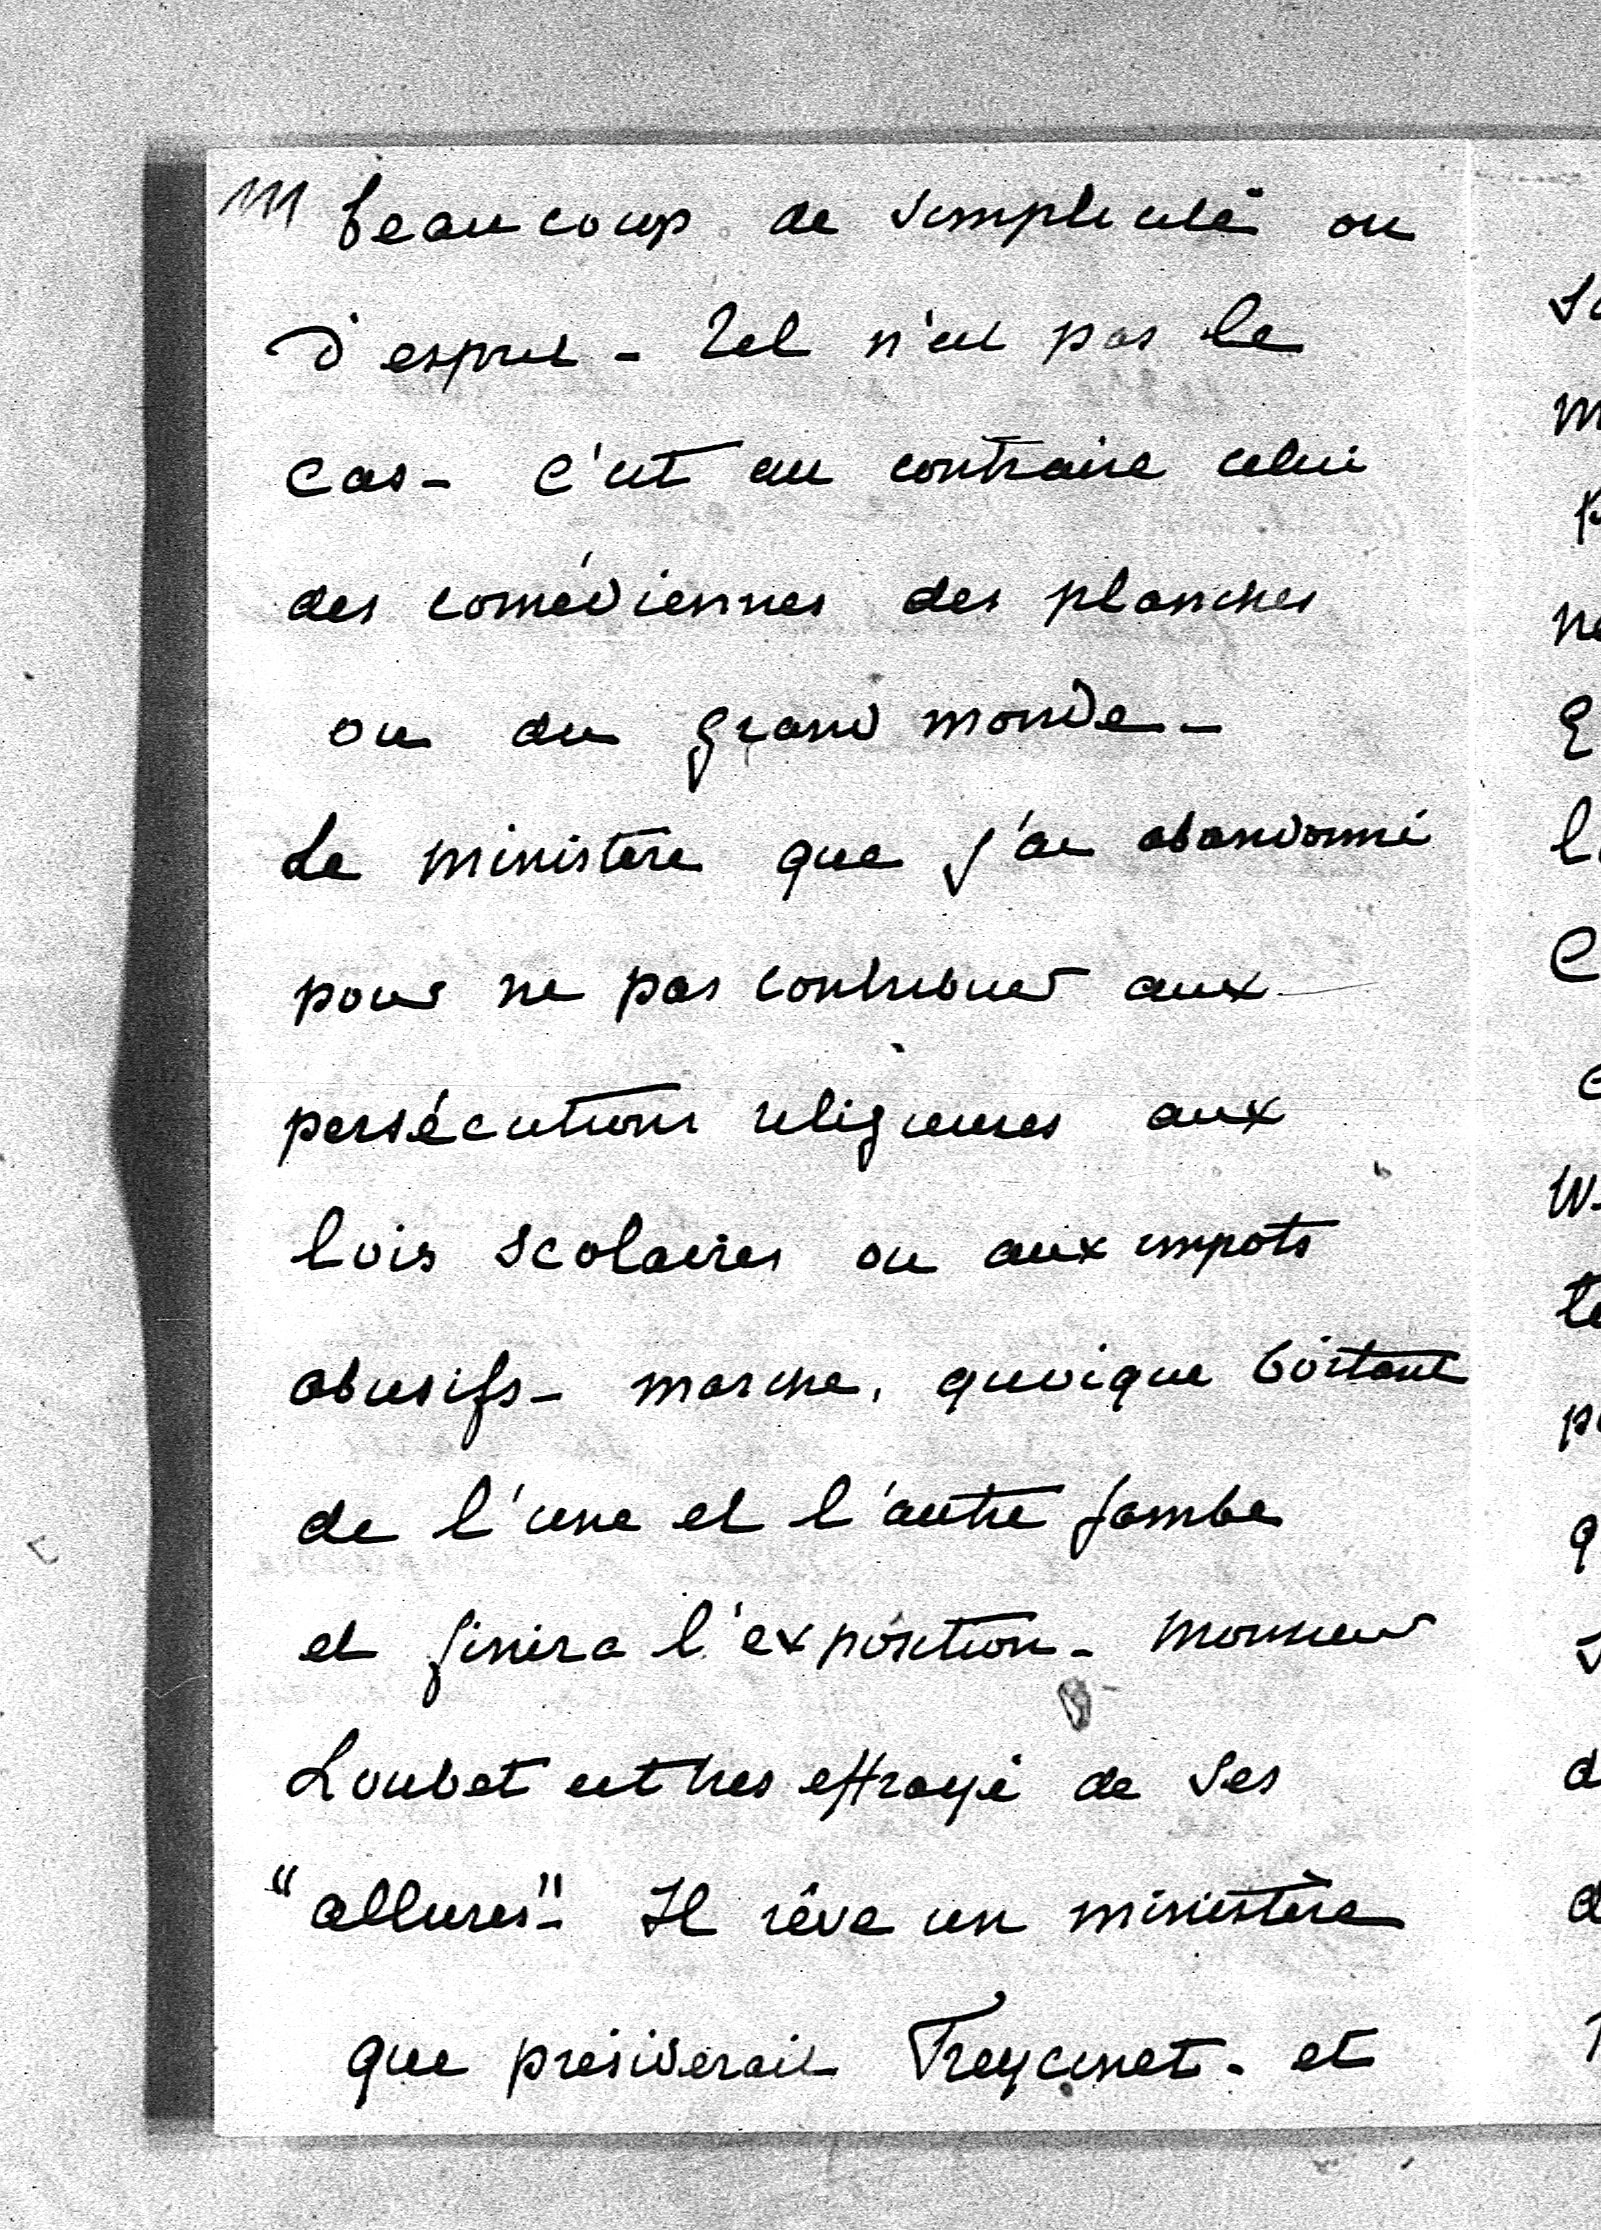 111 beaucoup de simplicité ou
d'esprit - Tel n'est pas le
cas - C'est au contraire celui
des comédiennes des planches
ou du grand monde -
Le ministère que j'ai abandonné
pour ne pas contribuer aux
persécutions religieuses aux
lois scolaires ou aux impots
abusifs - marche, quoique boitant
de l'une et l'autre jambe
et finira l'exposition - Monsieur
Loubet est tres effrayé de ses
"allures" - Il rêve un ministère
que présiderait Freycinet - et